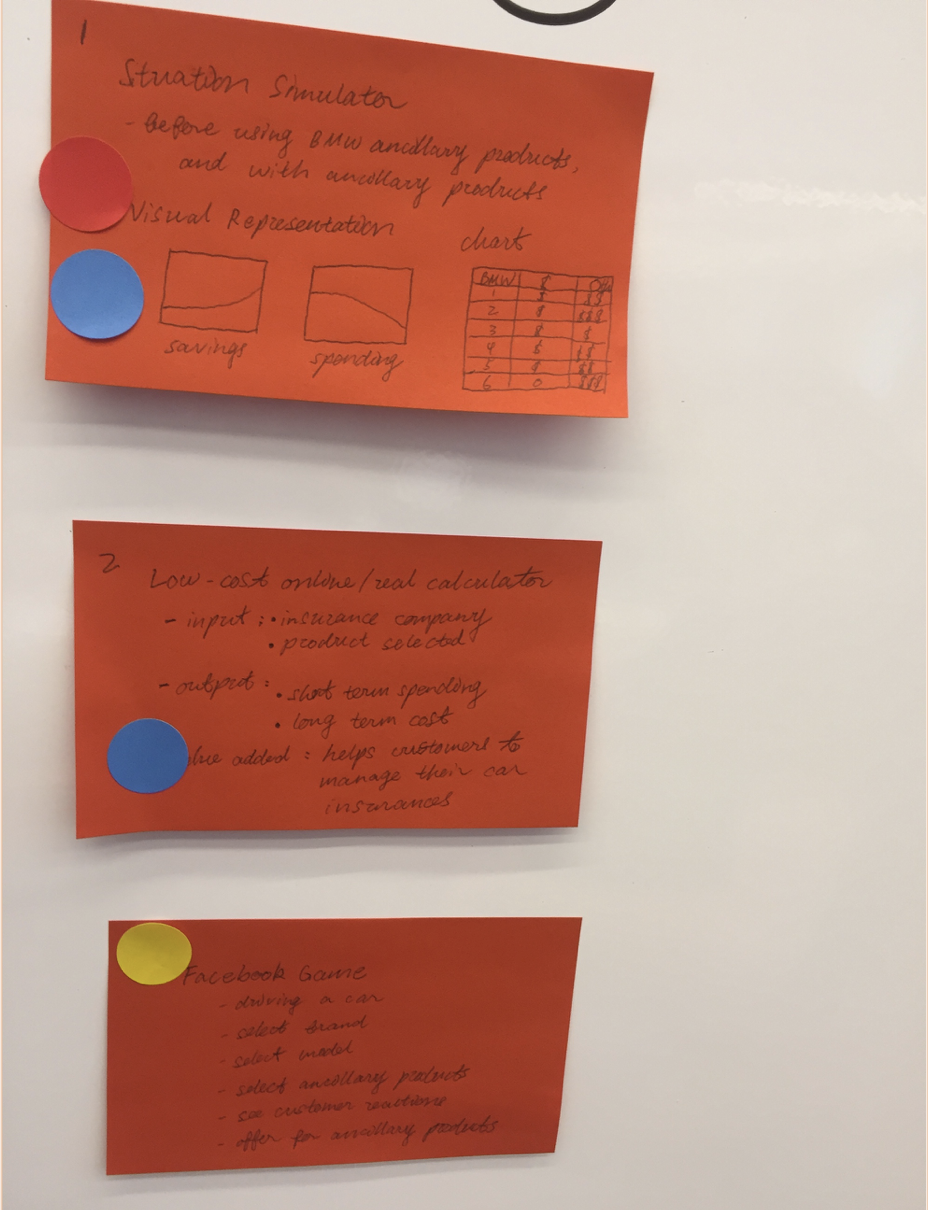 1
Stuation Simulator
- Before using BMW ancillary products,
and with ancillary products
Visual Representation
chart
savings
spending
BMW $ Oth
1 $ $$
2 $ $$$
3 $ $
4 $ $$
5 $ $$
6 0 $$$
2
Low-cost online/real calculator
- input : • insurance company
• product selected
- output : • short term spending
• long term cost
lue added : helps customers to
manage their car
insurances
Facebook Game
- driving a car
- select brand
- select model
- select ancillary products
- see customer reactions
- offer for ancillary products